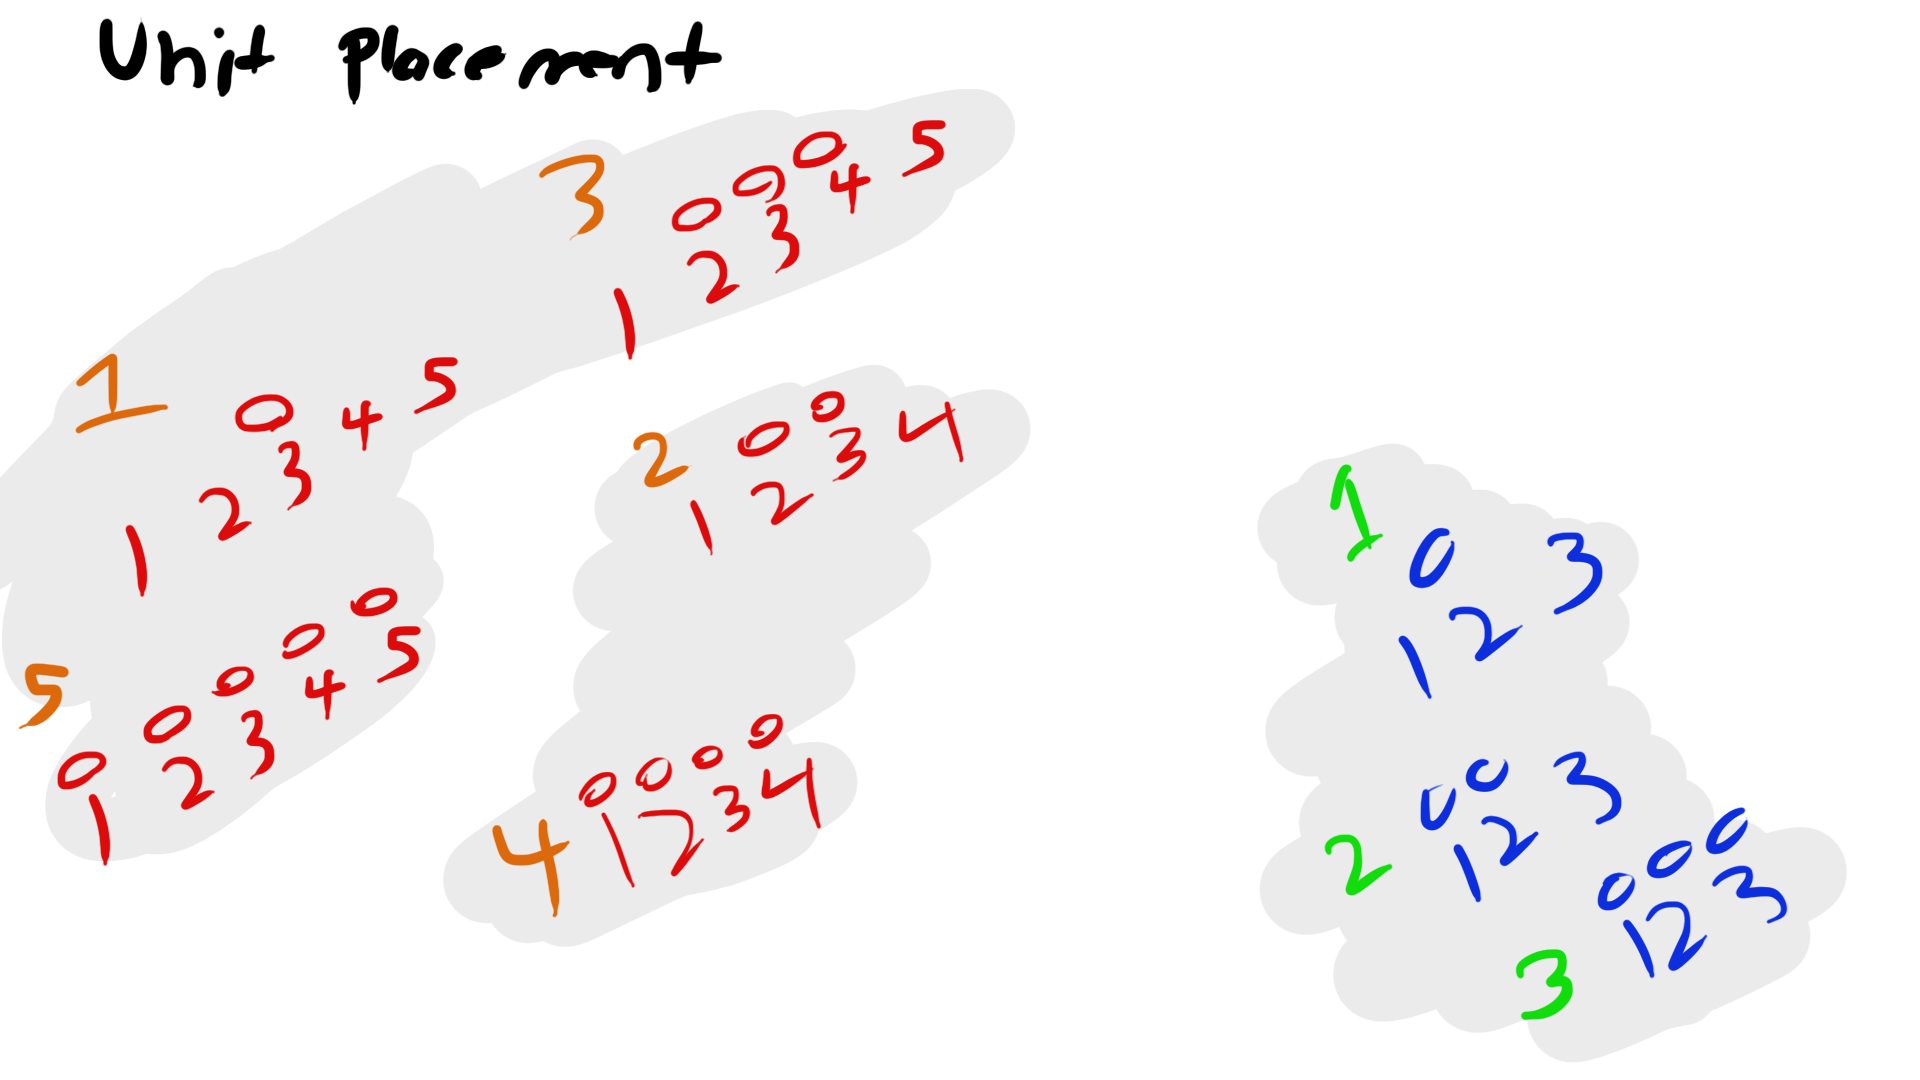 Unit Placement
3
0 0 0
1 2 3 4 5
1
0
1 2 3 4 5
2
0 0
1 2 3 4
5
0 0 0 0 0
1 2 3 4 5
4
0 0 0 0
1 2 3 4
1
0
1 2 3
2
0 0
1 2 3
3
0 0 0
1 2 3